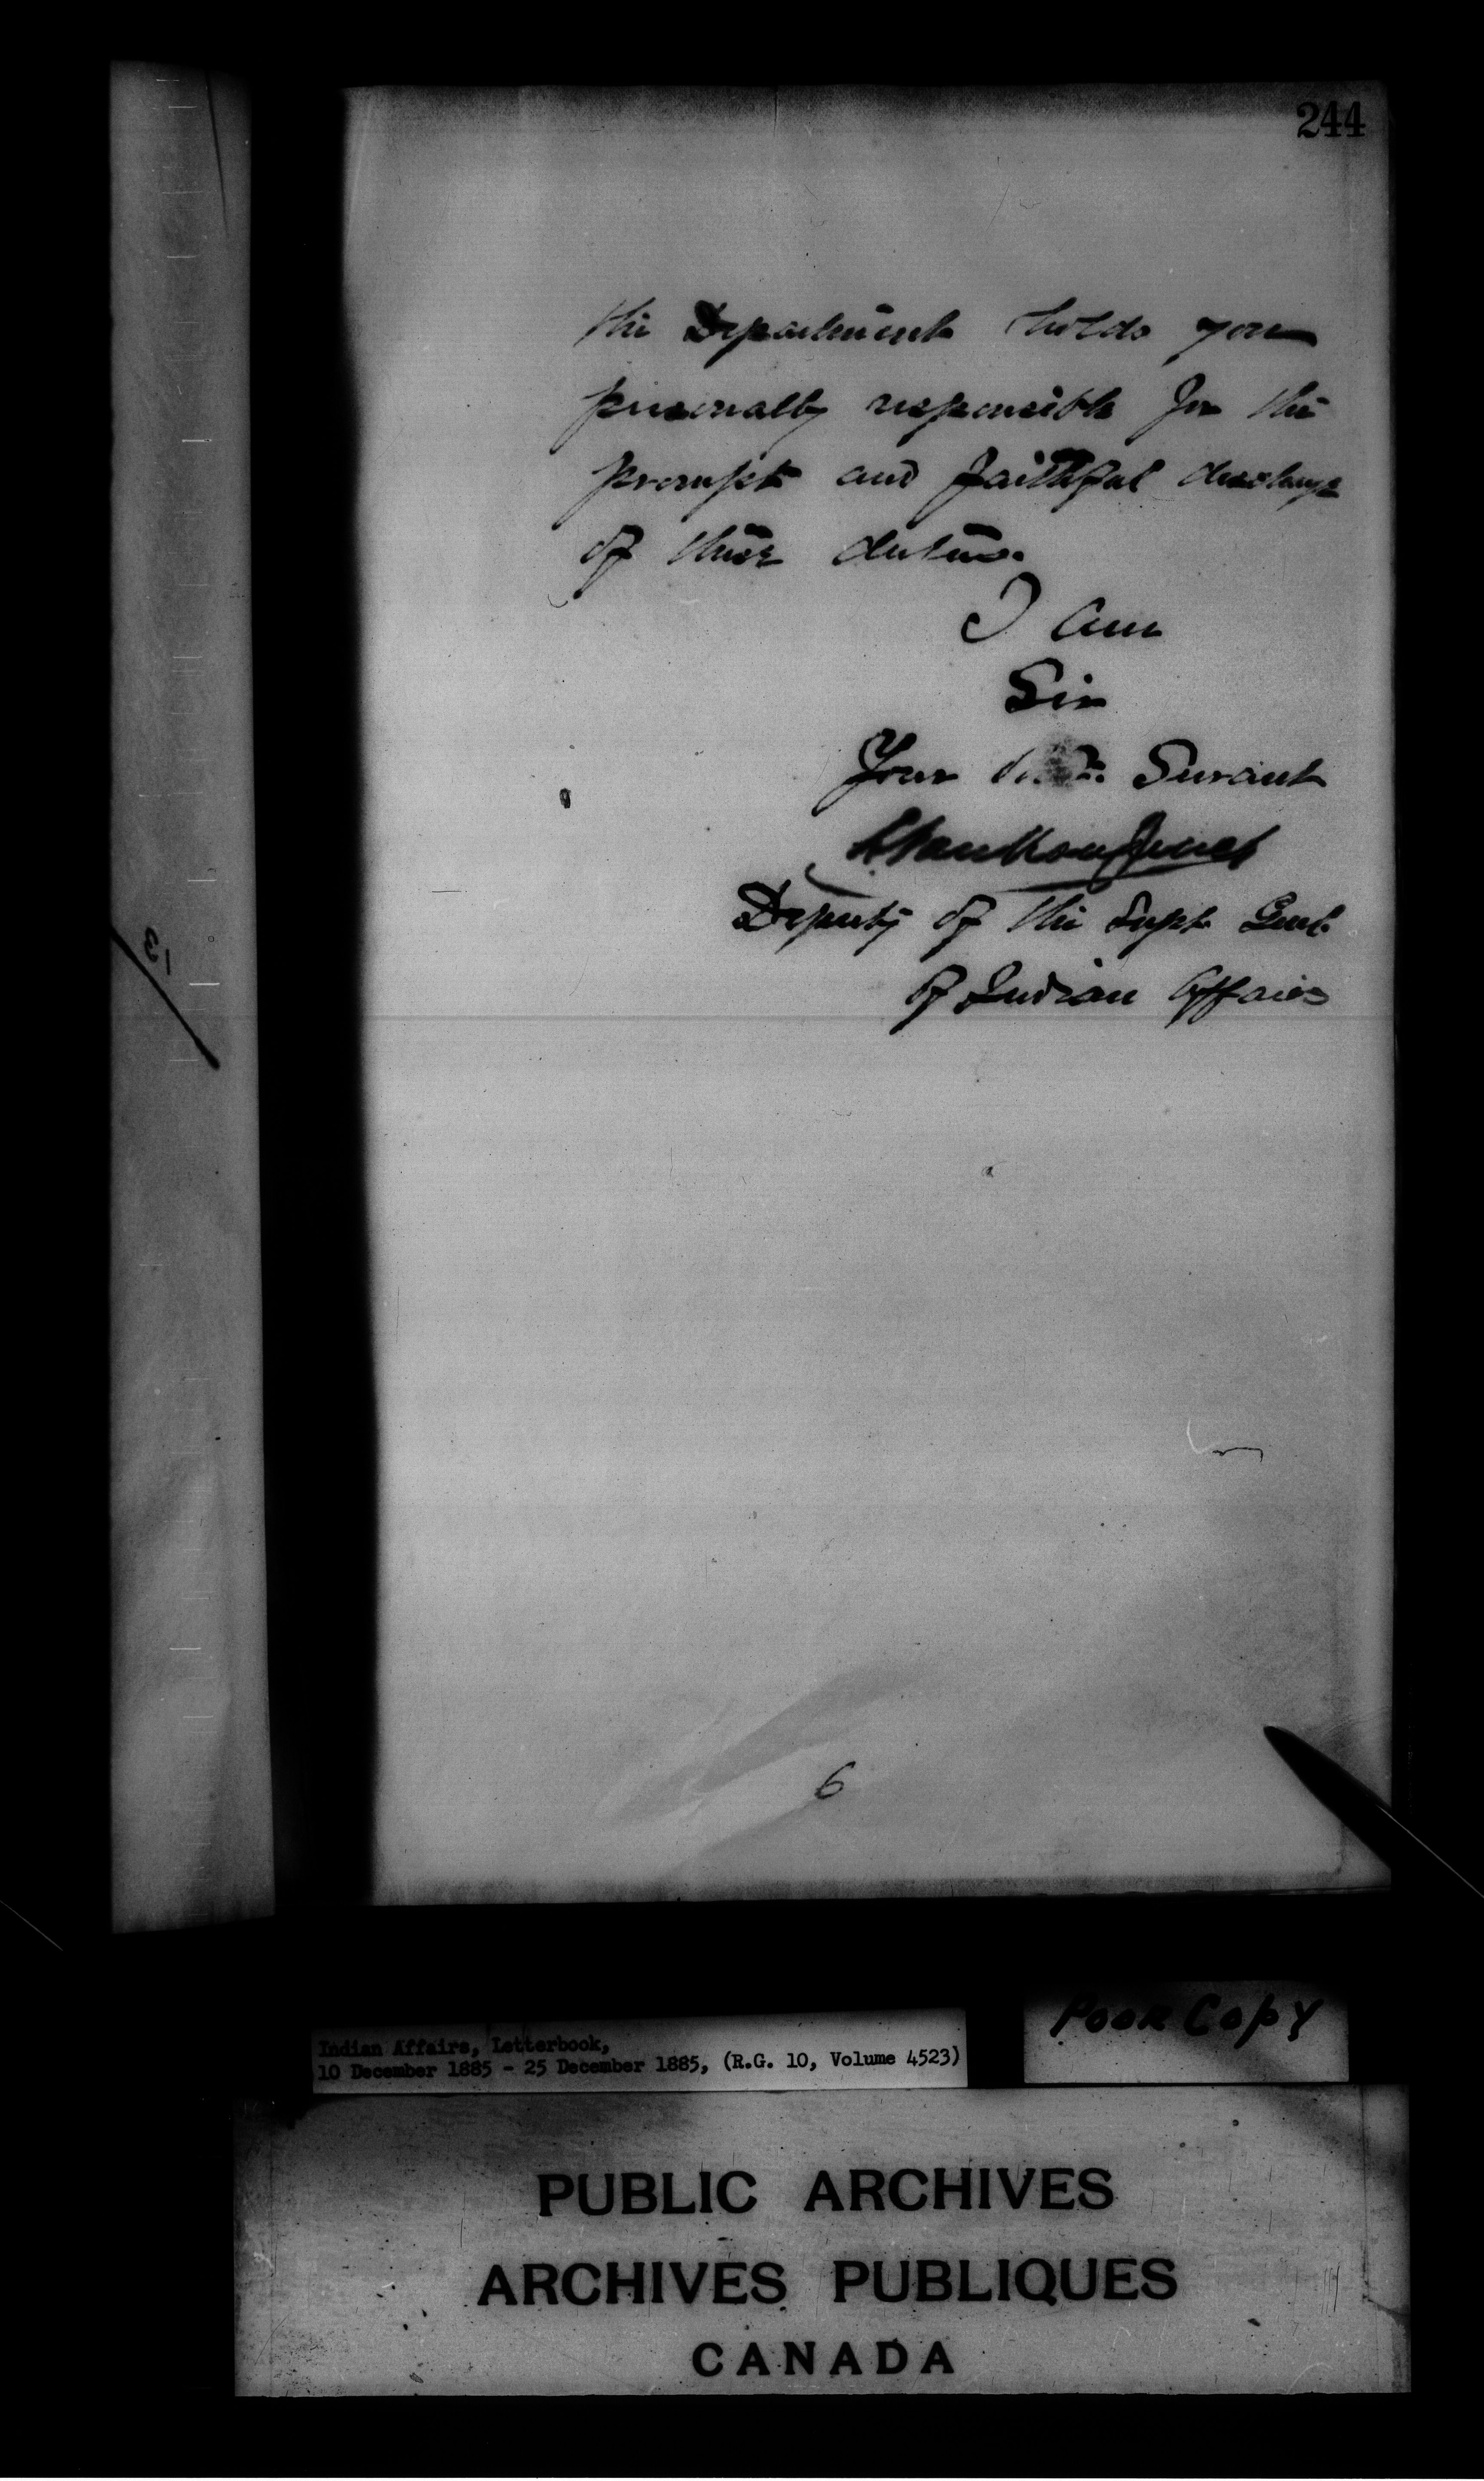 244
the Department holds you
personally responsible for the
prompt and faithful discharge
of these duties.
I am
Sir
Your Servant
L VanKoughnet
Deputy of the Supt Genl
of Indian Affairs
13
6
Poor Copy
Indian Affairs, Letterbook,
10 December 1885 - 25 December 1885, (R.G. 10, Volume 4523)
PUBLIC ARCHIVES
ARCHIVES PUBLIQUES
CANADA